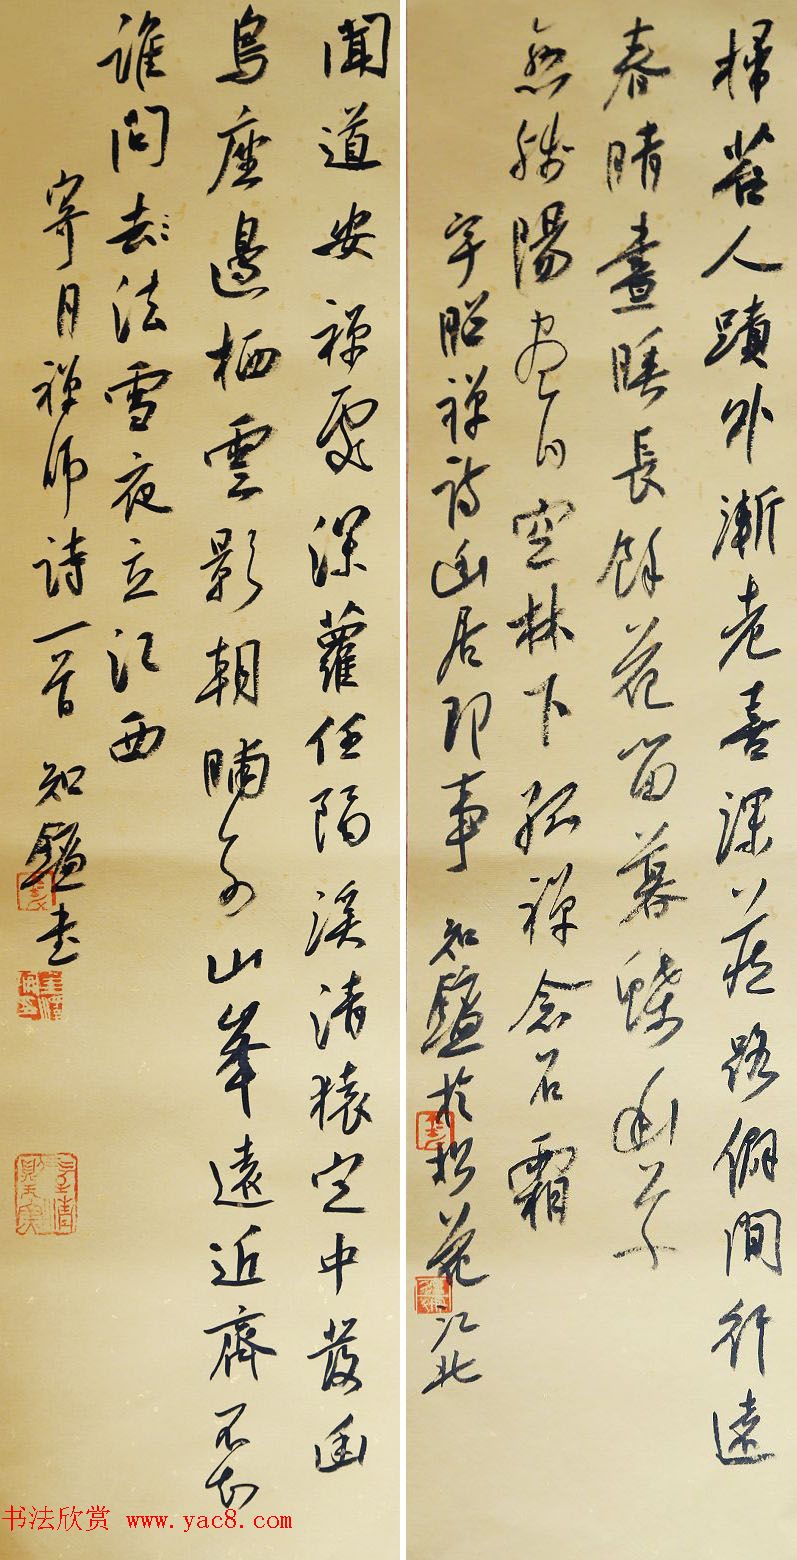 掃苔人蹟外漸老喜深藏路僻閒行遠
春晴晝睡長餘花留暮蝶幽草
戀殘陽盡日空林下孤禪念石霜
宇昭禪詩幽居即事 知鑒於松花江北
聞道安禪處深蘿任隔溪清猿定中發幽
鳥座邊栖雲影朝晡別山峯遠近齊不知
誰問去法雪夜立江西
寄月禪師詩一首 知鑒書
书法欣赏 www.yac8.com